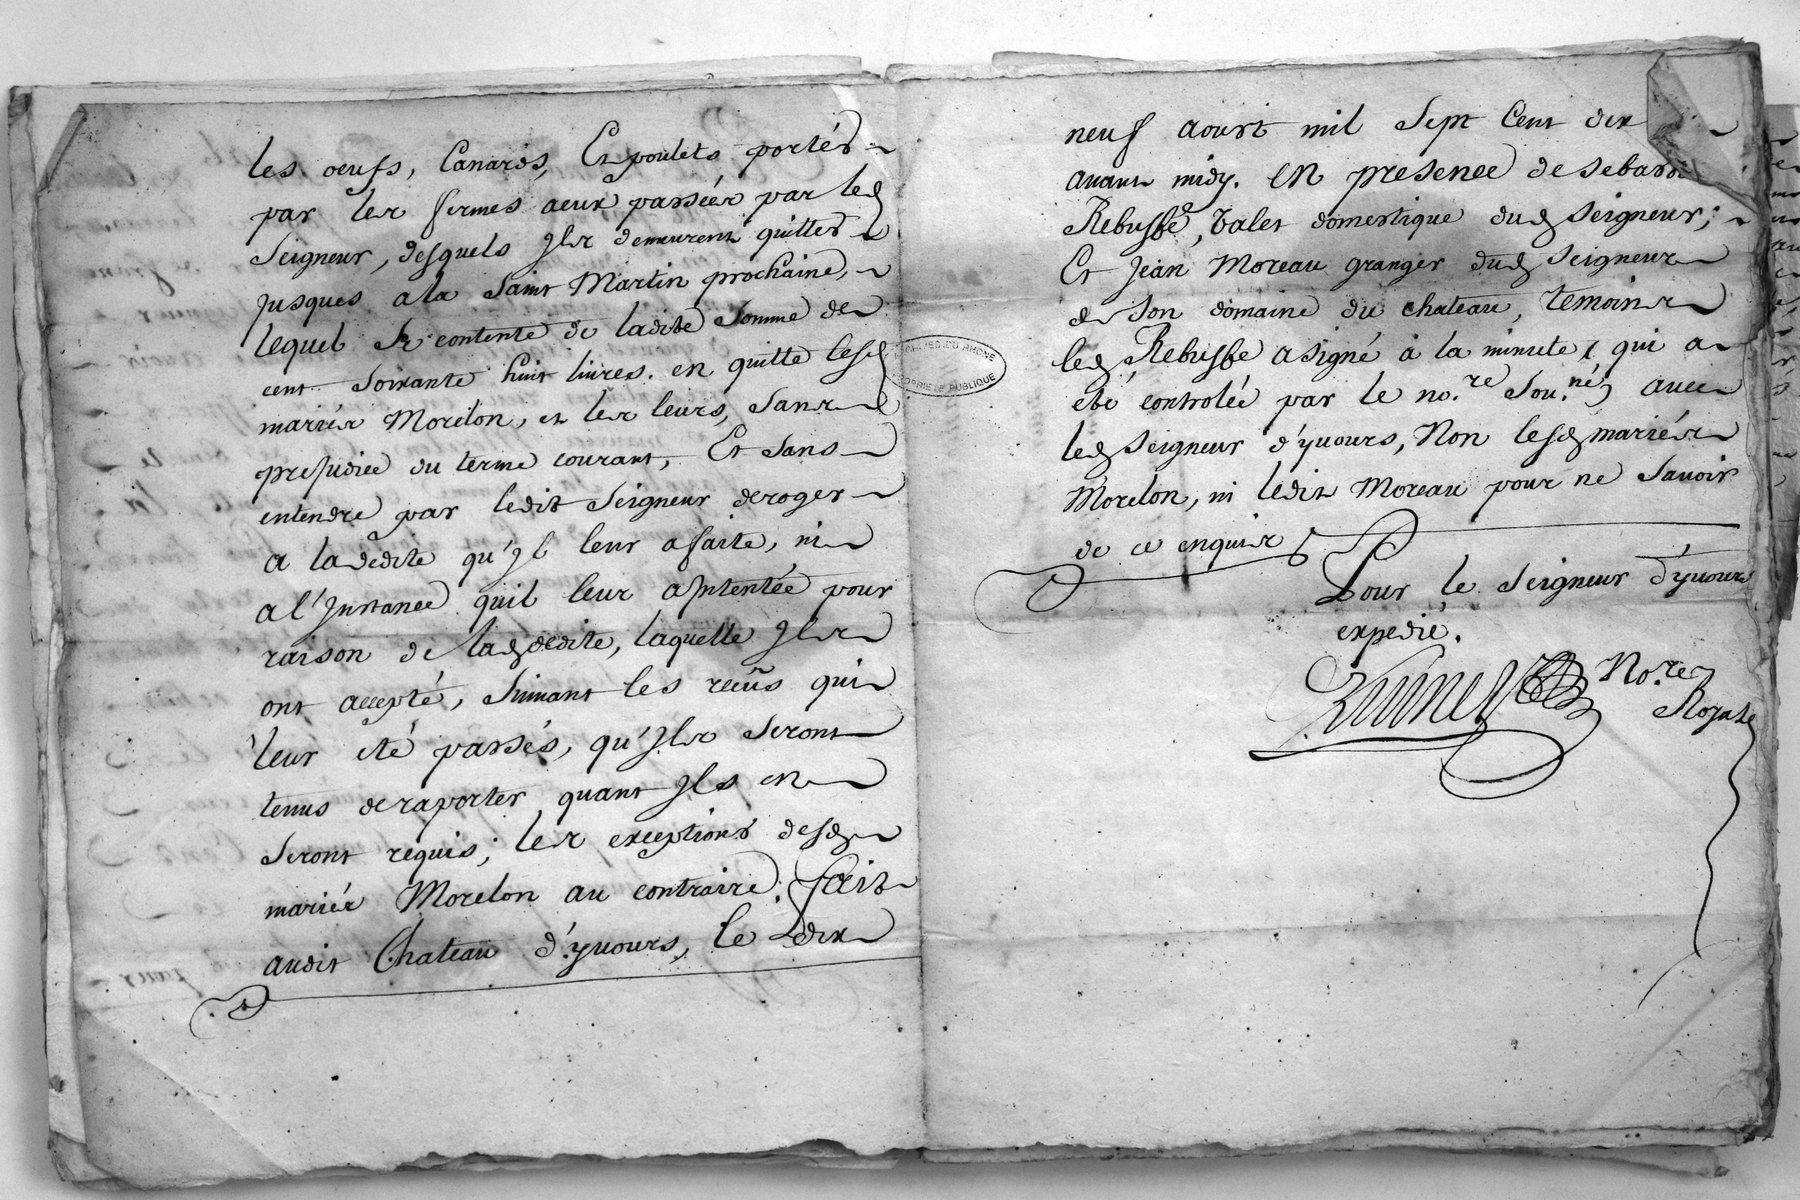 les oeufs, Canards, Et poulets portés
par les fermes aeux passées par led
Seigneur, desquels Jls demeurent quittes
jusques a la Saint Martin prochaine,
lequel se contente de ladite Somme de
cent Soixante huit livres. en quitte lesd
mariés Morelon, et les leurs, Sans
prejudice du terme courant, Et Sans
entendre par ledit Seigneur deroger
a la dedite qu'Jl leur a faite, ni
a l'Jnstance quil leur a Jntentée pour
raison de lad dedite, laquelle Jls
ont accepté, Suivant les recûs qui
leur eté passés, qu'Jls Seront
tenus de raporter quant Jls en
Seront requis; les exceptions desd
mariés Morelon au contraire. fait
audit Chateau d'yvours, le dix
neuf aoust mil Sept Cent dix
avant midy. en presence de sebast
Rebuffe, valet domestique dud Seigneur;
Et Jean Moreau granger dud Seigneur
de Son domaine du chateau, temoins
led Rebuffe a signé à la minute, qui a
eté controlée par le no.re Sou.né, avec
led Seigneur d'yvours, Non lesd mariés
Morelon, ni ledit Moreau pour ne Savoir
de ce enquis
ARCHIVES DU RHONE
PROPRIETE PUBLIQUE
Pour le Seigneur d'yvours
expedié.
No.re
Royal